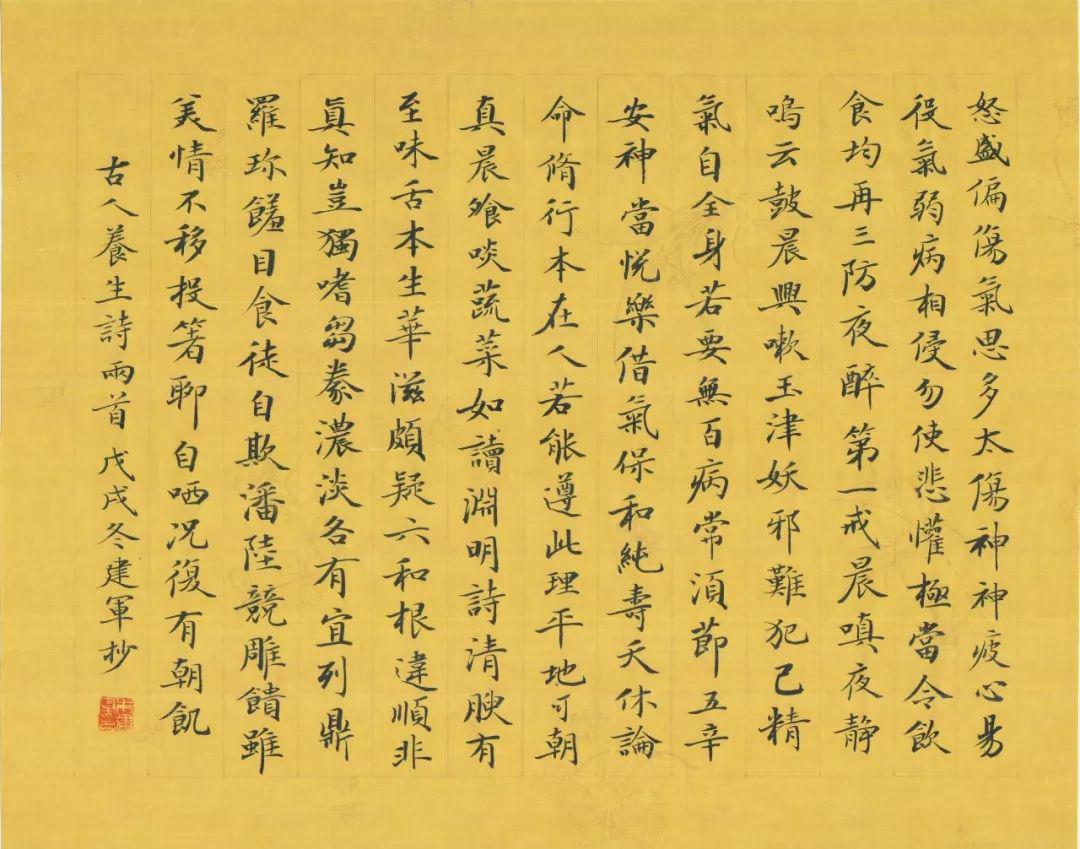 怒盛偏傷氣思多太傷神神疲心易
役氣弱病相侵勿使悲懽極當令飲
食均再三防夜醉第一戒晨嗔夜静
鳴云鼓晨興嗽玉津妖邪難犯己精
氣自全身若要無百病常須節五辛
安神當悦樂借氣保和純壽夭休論
命脩行本在人若能遵此理平地可朝
真晨飧啖蔬菜如讀淵明詩清腴有
至味舌本生華滋頗疑六和根違順非
真知豈獨嗜芻豢濃淡各有宜列鼎
羅珎饈目食徒自欺潘陸競雕饋雖
美情不移投箸聊自哂况復有朝飢
古人養生詩兩首戊戌冬建軍抄